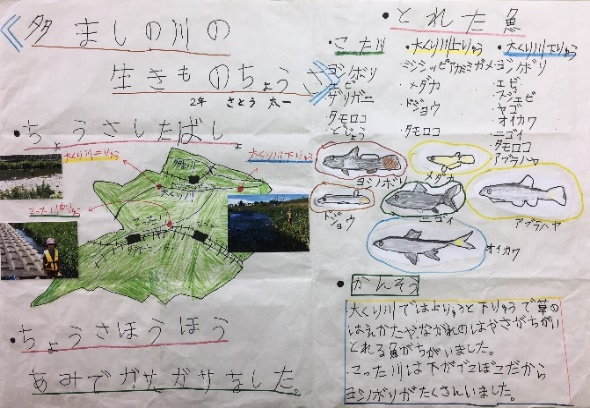 《多ましの川の
生きものちょうさ》
2年 さとう 太一
・ちょうさしたばしょ
大くり川上りゅう
大くり川下りゅう
大くり川
・ちょうさほうほう
あみでガサガサをした。
・とれた魚
・こった川
ヨシノボリ
エビ
ザリガニ
タモロコ
どじょう
・大くり川上りゅう
ミシシッピアカミミガメ
・メダカ
ドジョウ
タモロコ
・大くり川下りゅう
ヨシノボリ
・エビ
・スジエビ
・ヤゴ
・オイカワ
・ニゴイ
・タモロコ
・アブラハヤ
ヨシノボリ
メダカ
ドジョウ
ニゴイ
アブラハヤ
オイカワ
・かんそう
大くり川では上りゅうと下りゅうで草の
はえかたや、ながれのはやさがちがい
とれる魚がちがいました。
・こった川は下がでこぼこだから
ヨシノボリがたくさんいました。